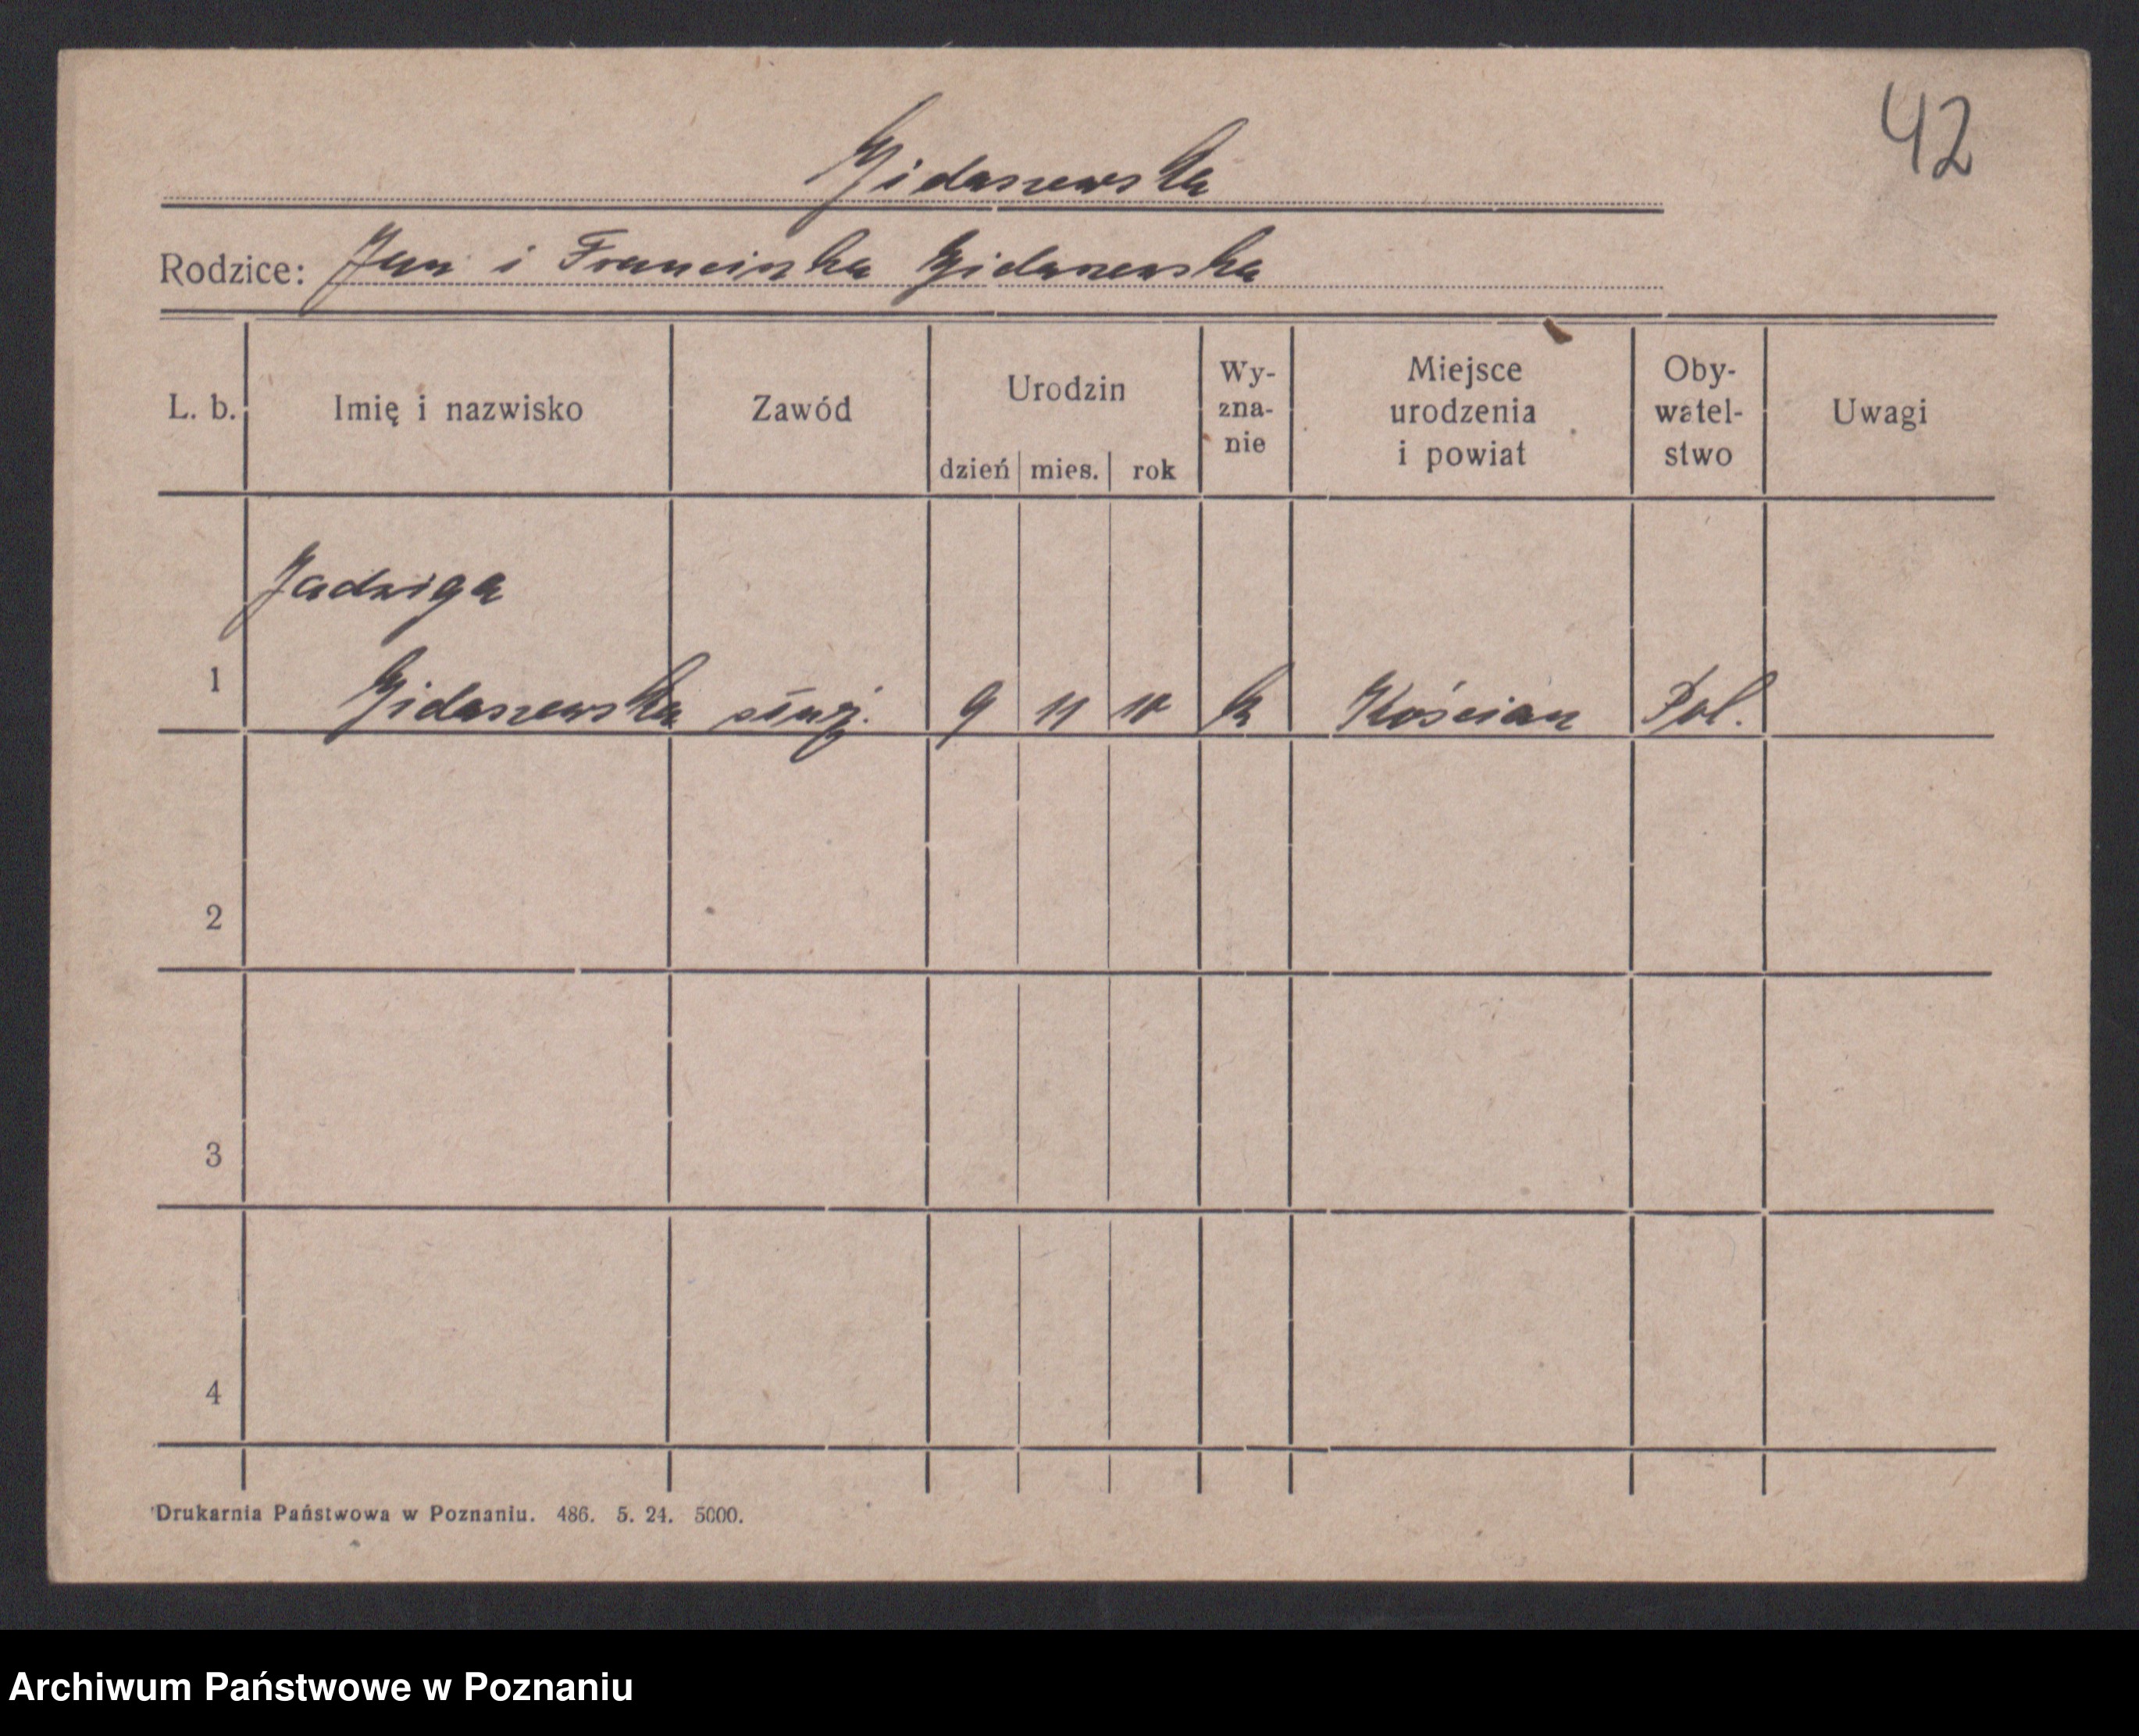 42
Gidaszewska
Rodzice: Jan i Franciszka Gidaszewska
L. b. Imię i nazwisko Zawód Urodzin dzień mies. rok Wy-zna-nie Miejsce urodzenia i powiat Oby-watel-stwo Uwagi
Jadwiga
1 Gidaszewska służ. 9 11 10 k Kościan Pol.
2
3
4
Drukarnia Państwowa w Poznaniu. 486. 5. 24. 5000.
Archiwum Państwowe w Poznaniu